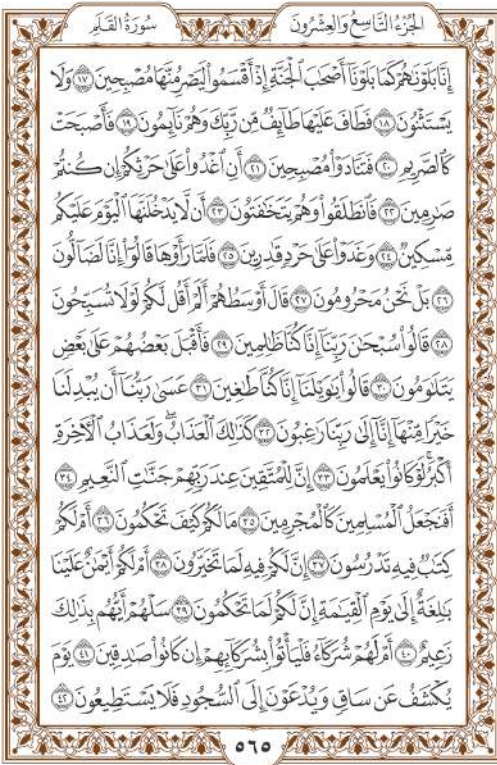 الجُزْءُ التَّاسِعُ وَالعِشْرُونَ سُورَةُ القَلَمِ
إِنَّا بَلَوْنَٰهُمْ كَمَا بَلَوْنَآ أَصْحَٰبَ ٱلْجَنَّةِ إِذْ أَقْسَمُوا۟ لَيَصْرِمُنَّهَا مُصْبِحِينَ ١٧ وَلَا
يَسْتَثْنُونَ ١٨ فَطَافَ عَلَيْهَا طَآئِفٌ مِّن رَّبِّكَ وَهُمْ نَآئِمُونَ ١٩ فَأَصْبَحَتْ
كَٱلصَّرِيمِ ٢٠ فَتَنَادَوْا۟ مُصْبِحِينَ ٢١ أَنِ ٱغْدُوا۟ عَلَىٰ حَرْثِكُمْ إِن كُنتُمْ
صَٰرِمِينَ ٢٢ فَٱنطَلَقُوا۟ وَهُمْ يَتَخَٰفَتُونَ ٢٣ أَن لَّا يَدْخُلَنَّهَا ٱلْيَوْمَ عَلَيْكُم
مِّسْكِينٌ ٢٤ وَغَدَوْا۟ عَلَىٰ حَرْدٍ قَٰدِرِينَ ٢٥ فَلَمَّا رَأَوْهَا قَالُوٓا۟ إِنَّا لَضَآلُّونَ
٢٦ بَلْ نَحْنُ مَحْرُومُونَ ٢٧ قَالَ أَوْسَطُهُمْ أَلَمْ أَقُل لَّكُمْ لَوْلَا تُسَبِّحُونَ
٢٨ قَالُوا۟ سُبْحَٰنَ رَبِّنَآ إِنَّا كُنَّا ظَٰلِمِينَ ٢٩ فَأَقْبَلَ بَعْضُهُمْ عَلَىٰ بَعْضٍ
يَتَلَٰوَمُونَ ٣٠ قَالُوا۟ يَٰوَيْلَنَآ إِنَّا كُنَّا طَٰغِينَ ٣١ عَسَىٰ رَبُّنَآ أَن يُبْدِلَنَا
خَيْرًا مِّنْهَآ إِنَّآ إِلَىٰ رَبِّنَا رَٰغِبُونَ ٣٢ كَذَٰلِكَ ٱلْعَذَابُ ۖ وَلَعَذَابُ ٱلْءَاخِرَةِ
أَكْبَرُ ۚ لَوْ كَانُوا۟ يَعْلَمُونَ ٣٣ إِنَّ لِلْمُتَّقِينَ عِندَ رَبِّهِمْ جَنَّٰتِ ٱلنَّعِيمِ ٣٤
أَفَنَجْعَلُ ٱلْمُسْلِمِينَ كَٱلْمُجْرِمِينَ ٣٥ مَا لَكُمْ كَيْفَ تَحْكُمُونَ ٣٦ أَمْ لَكُمْ
كِتَٰبٌ فِيهِ تَدْرُسُونَ ٣٧ إِنَّ لَكُمْ فِيهِ لَمَا تَخَيَّرُونَ ٣٨ أَمْ لَكُمْ أَيْمَٰنٌ عَلَيْنَا
بَٰلِغَةٌ إِلَىٰ يَوْمِ ٱلْقِيَٰمَةِ إِنَّ لَكُمْ لَمَا تَحْكُمُونَ ٣٩ سَلْهُمْ أَيُّهُم بِذَٰلِكَ
زَعِيمٌ ٤٠ أَمْ لَهُمْ شُرَكَآءُ فَلْيَأْتُوا۟ بِشُرَكَآئِهِمْ إِن كَانُوا۟ صَٰدِقِينَ ٤١ يَوْمَ
يُكْشَفُ عَن سَاقٍ وَيُدْعَوْنَ إِلَى ٱلسُّجُودِ فَلَا يَسْتَطِيعُونَ ٤٢
٥٦٥